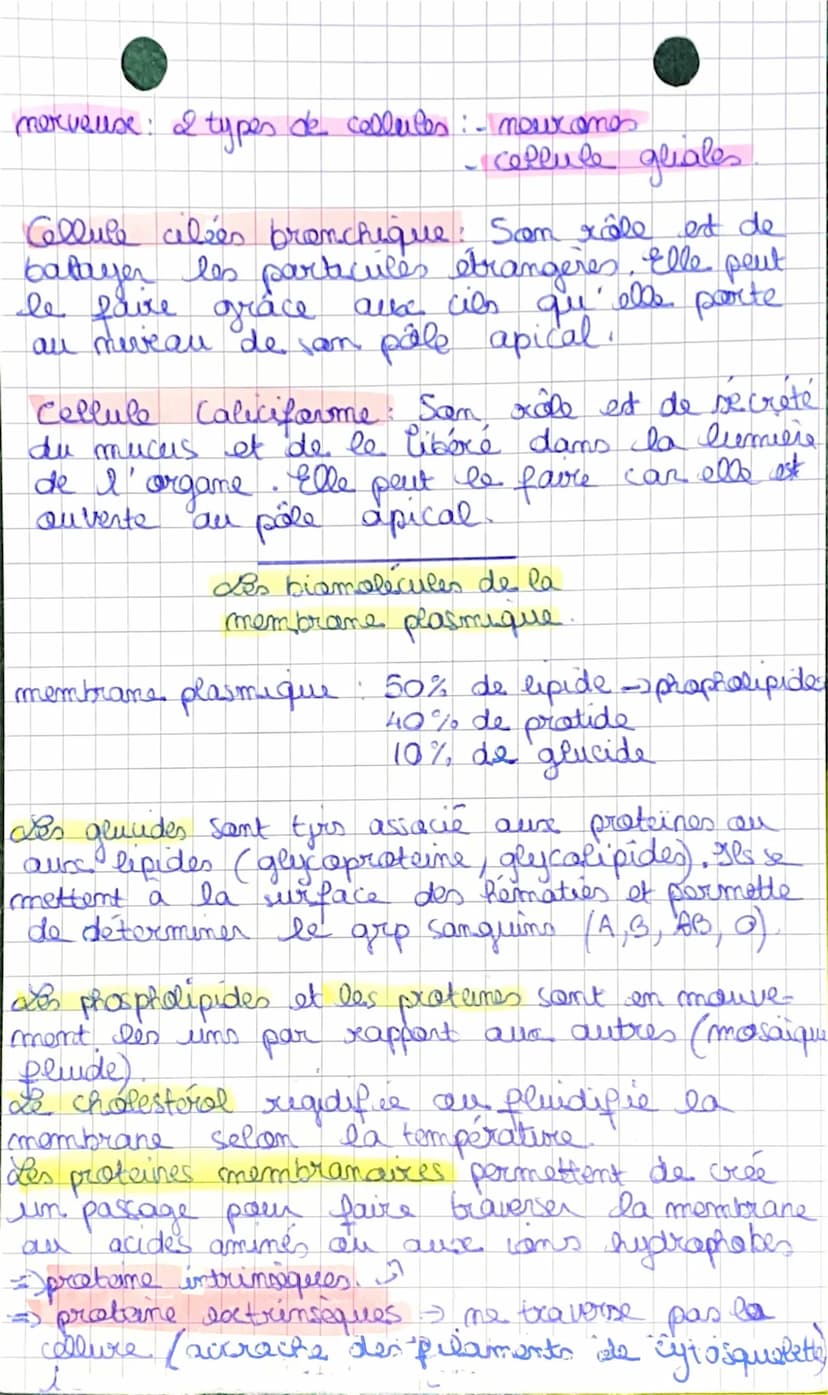 nerveuse : 2 types de cellules : - neurones
- cellule gliales
Cellule ciliées bronchique : Son rôle est de
balayer les particules étrangères. Elle peut
le faire grâce aux cils qu'elle porte
au niveau de son pôle apical.
Cellule Caliciforme : Son rôle est de sécrété
du mucus et de le libéré dans la lumière
de l'organe. Elle peut le faire car elle est
ouverte au pôle apical.
Les biomolécules de la
membrane plasmique.
membrane plasmique : 50% de lipide → phospholipides
40% de protide
10% de glucide
Les glucides sont tjrs associé aux protéines ou
aux lipides (glycoproteine, glycolipides). Ils se
mettent à la surface des hématies et permette
de déterminer le grp sanguins (A, B, AB, O).
Les phospholipides et les proteines sont en mouve-
ment les uns par rapport aux autres (mosaïque
fluide).
Le cholestérol rigidifie ou fluidifie la
membrane selon la température.
Les proteines membranaires permettent de créé
un passage pour faire traverser la membrane
au acides aminés ou aux ions hydrophobes
⇒ proteine intrinsèques.
⇒ proteine extrinsèques → ne traverse pas la
cellule (accroche des filaments de cytosquelette)